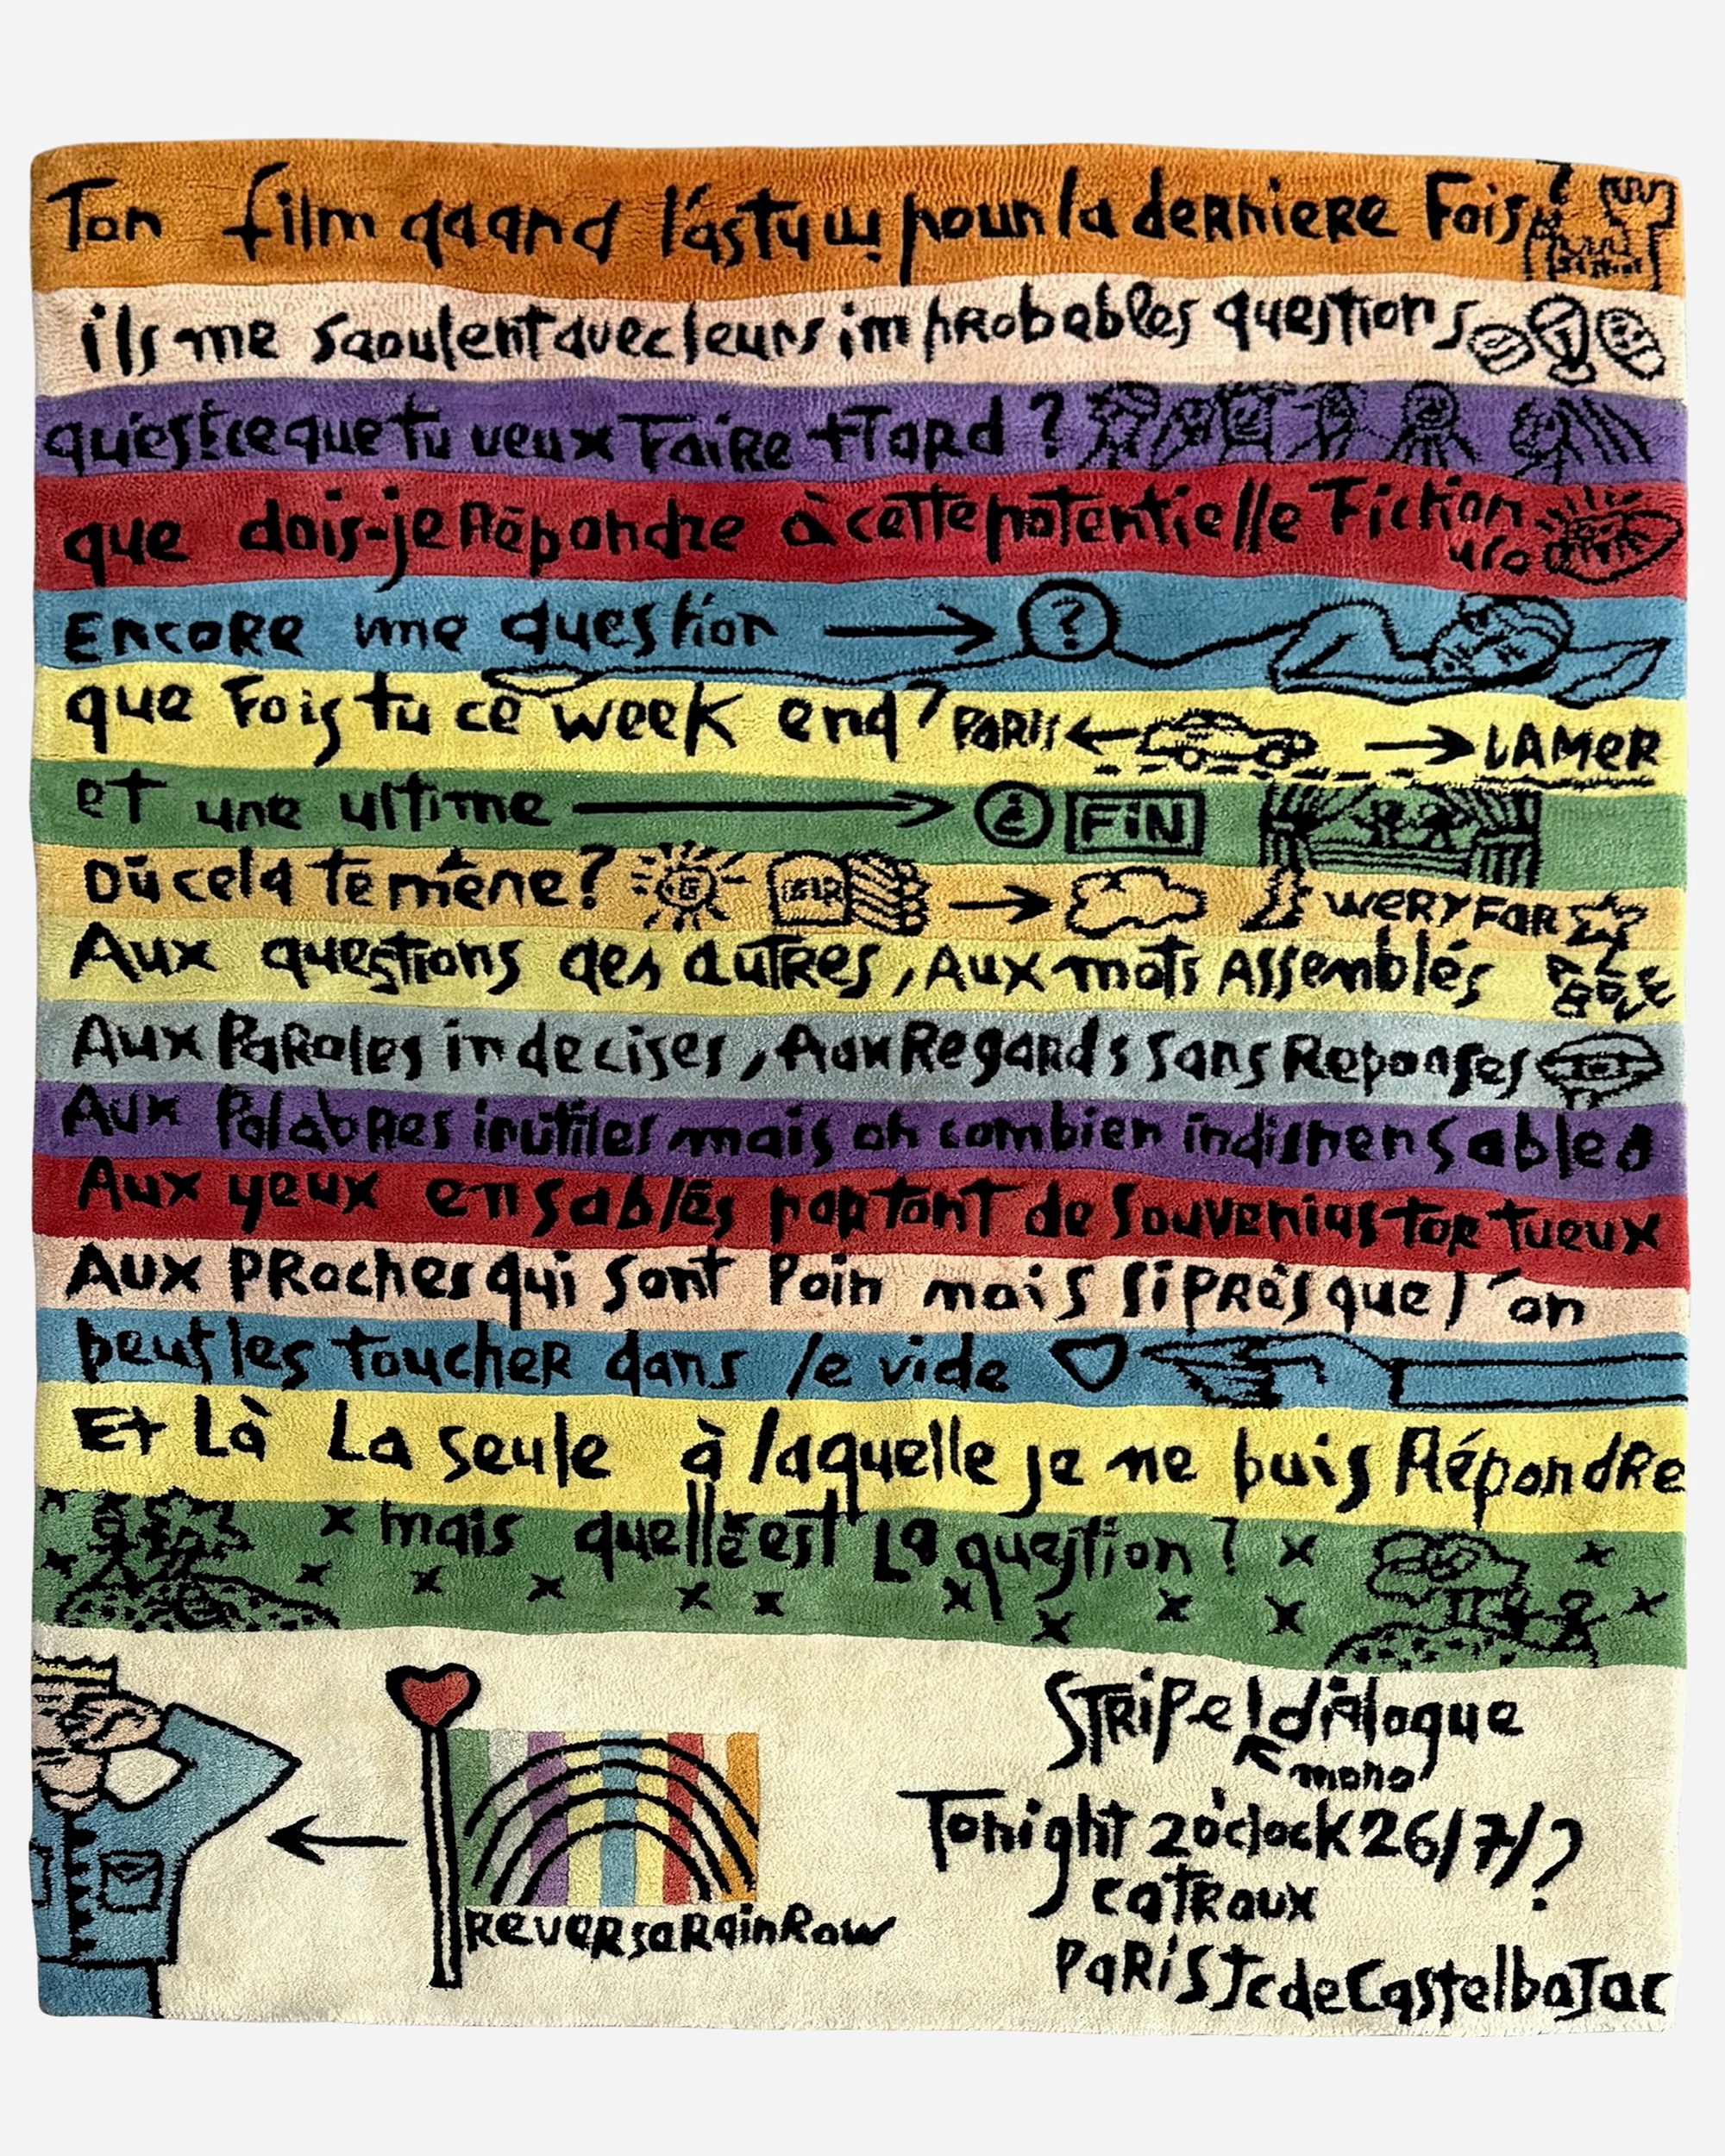 Ton film quand l'as tu vu pour la derniere Fois?
ils me saoulent avec leurs improbables questions
qu'est ce que tu veux Faire +Tard ?
que dois-je Répondre à cette potentielle Fiction
Encore une question → ?
que Fais tu ce week end? PARIS ← → LAMER
et une ultime → ¿ FiN
Où cela te mène? → WERY FAR
Aux questions des autres, Aux mots Assemblés
Aux Paroles indecises, Aux Regards sans Reponses
Aux Palabres inutiles mais oh combien indispensables
Aux yeux ensablés partant de souvenirs tortueux
Aux PRoches qui sont loin mais si près que l'on
peut les toucher dans le vide
Et Là La seule à laquelle je ne puis Répondre
x mais quelle est La question ? x
STRIPe! diAlogue
mono
Tonight 2o'clock 26/7/?
catraux
REVERSaRainBow
PARiS JcdeCastelbaJac